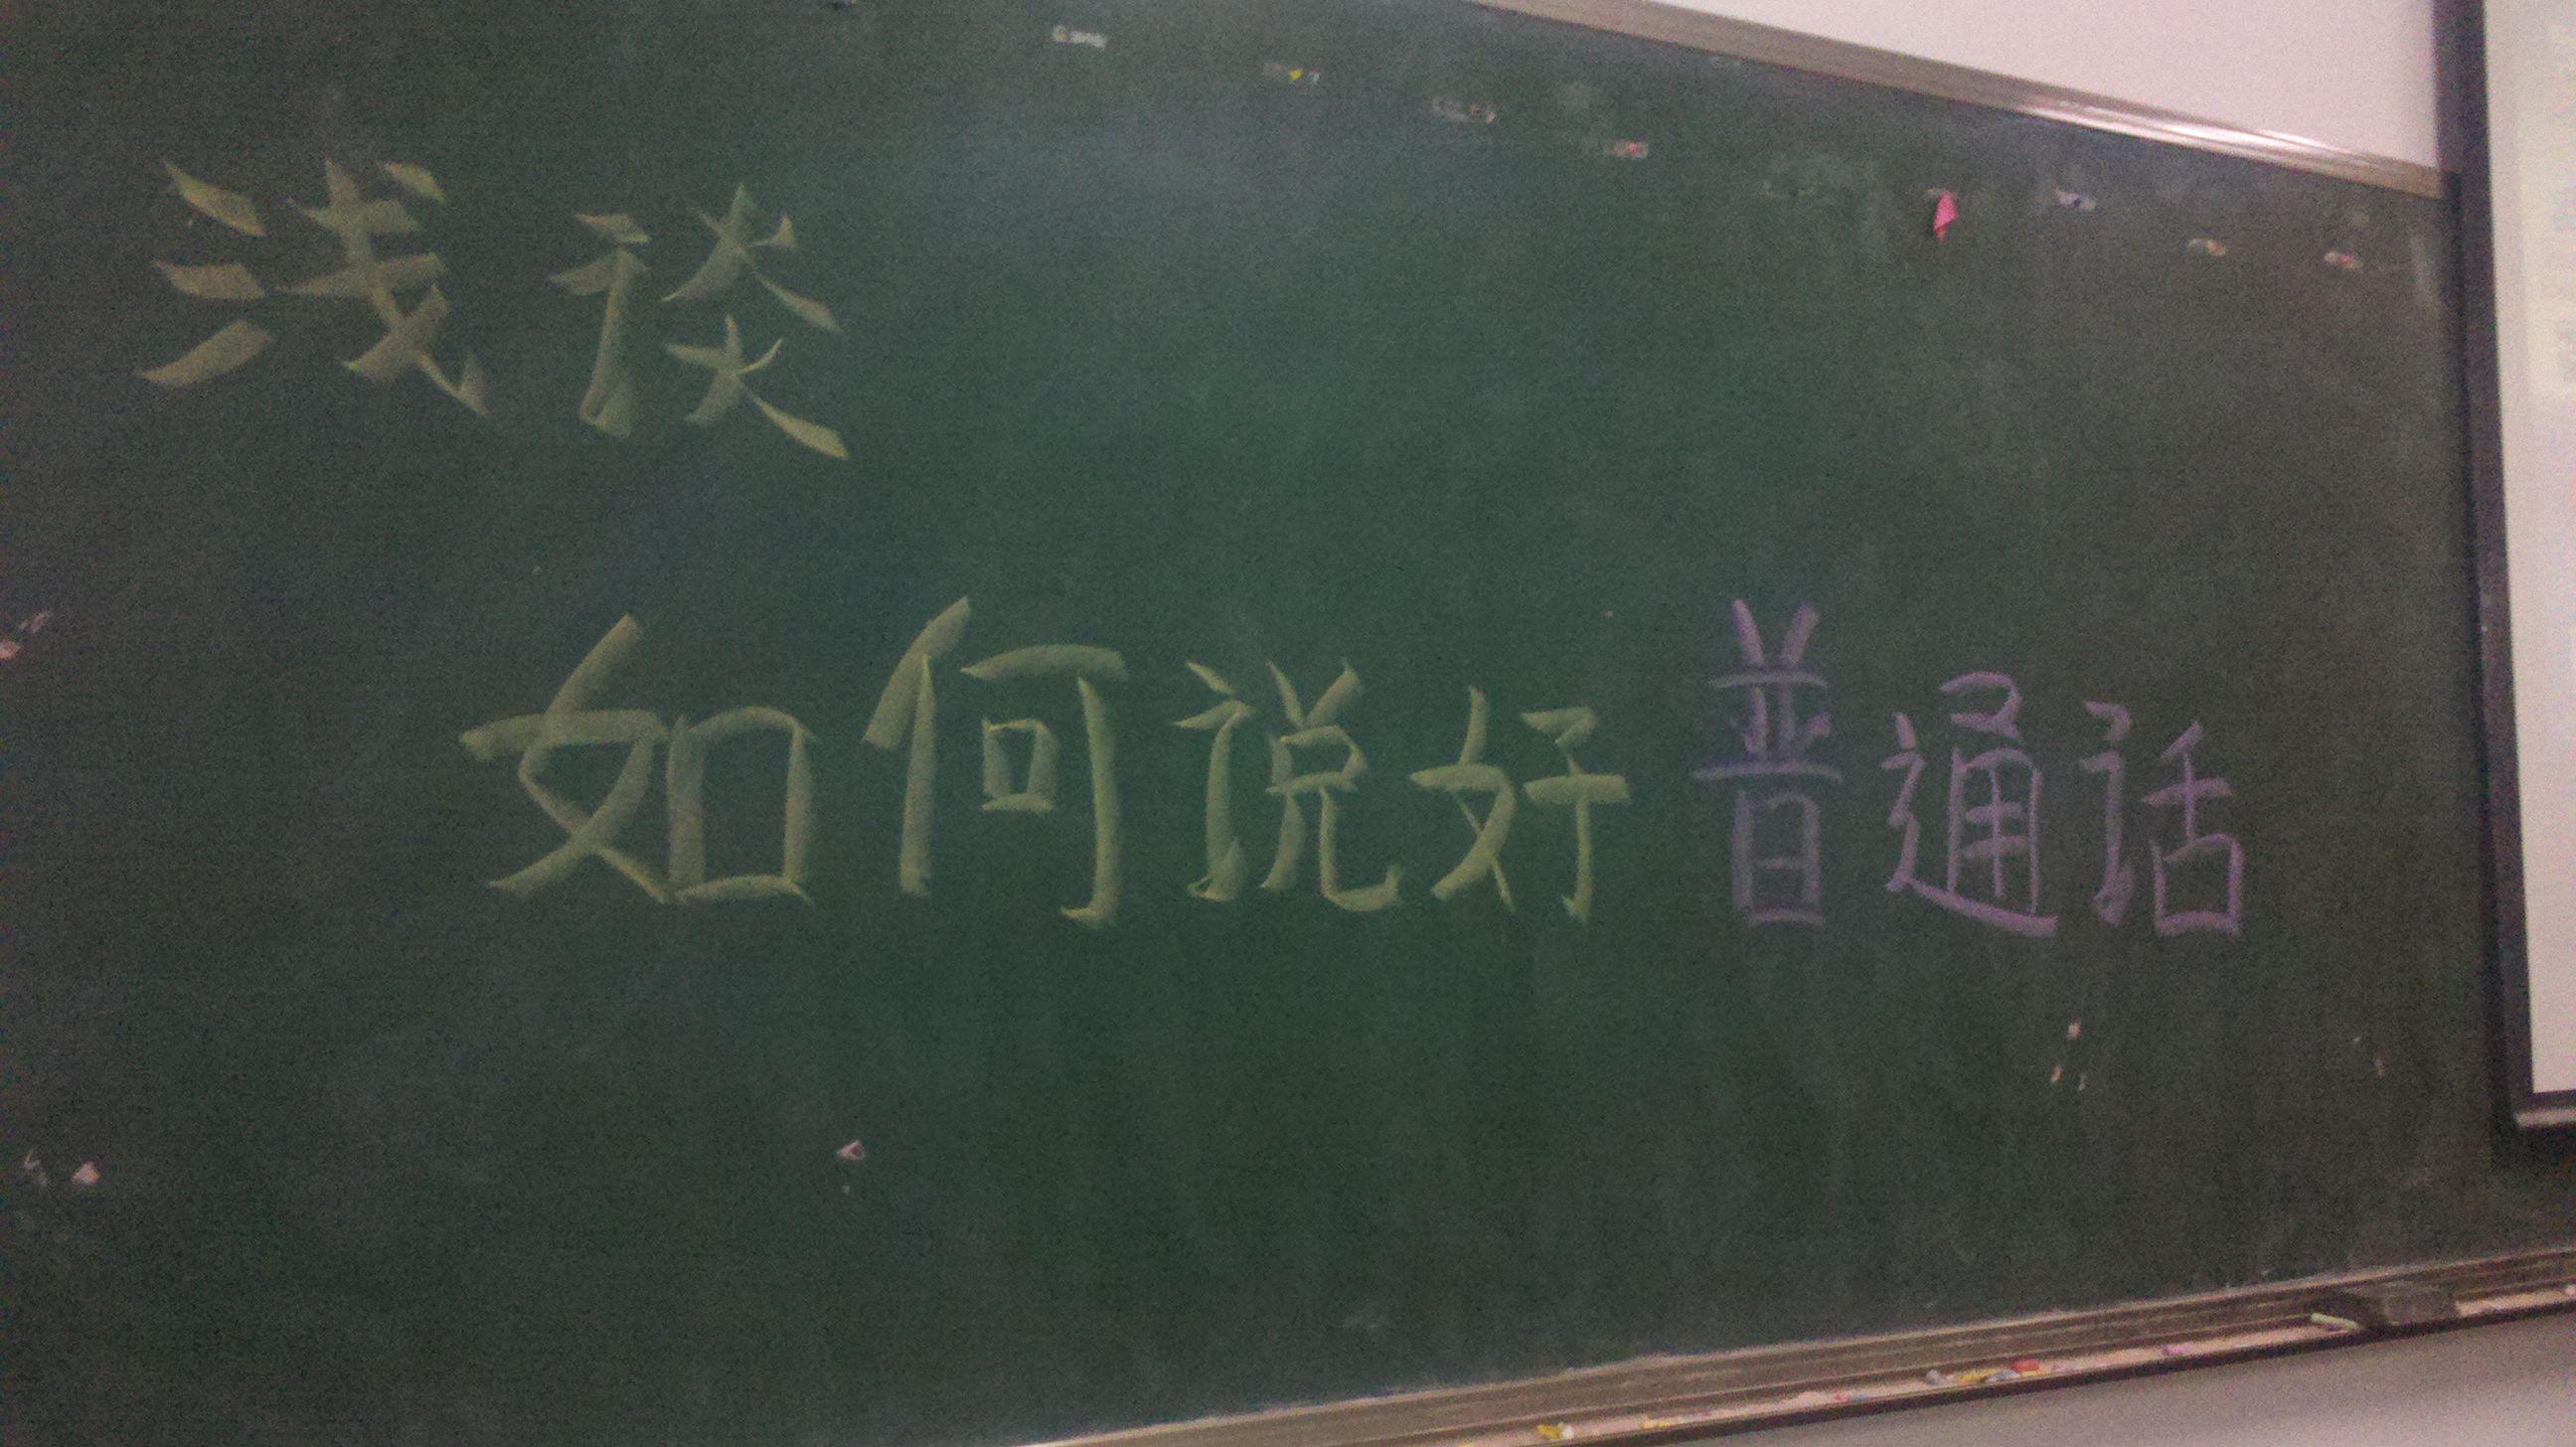 浅谈
如何说好普通话